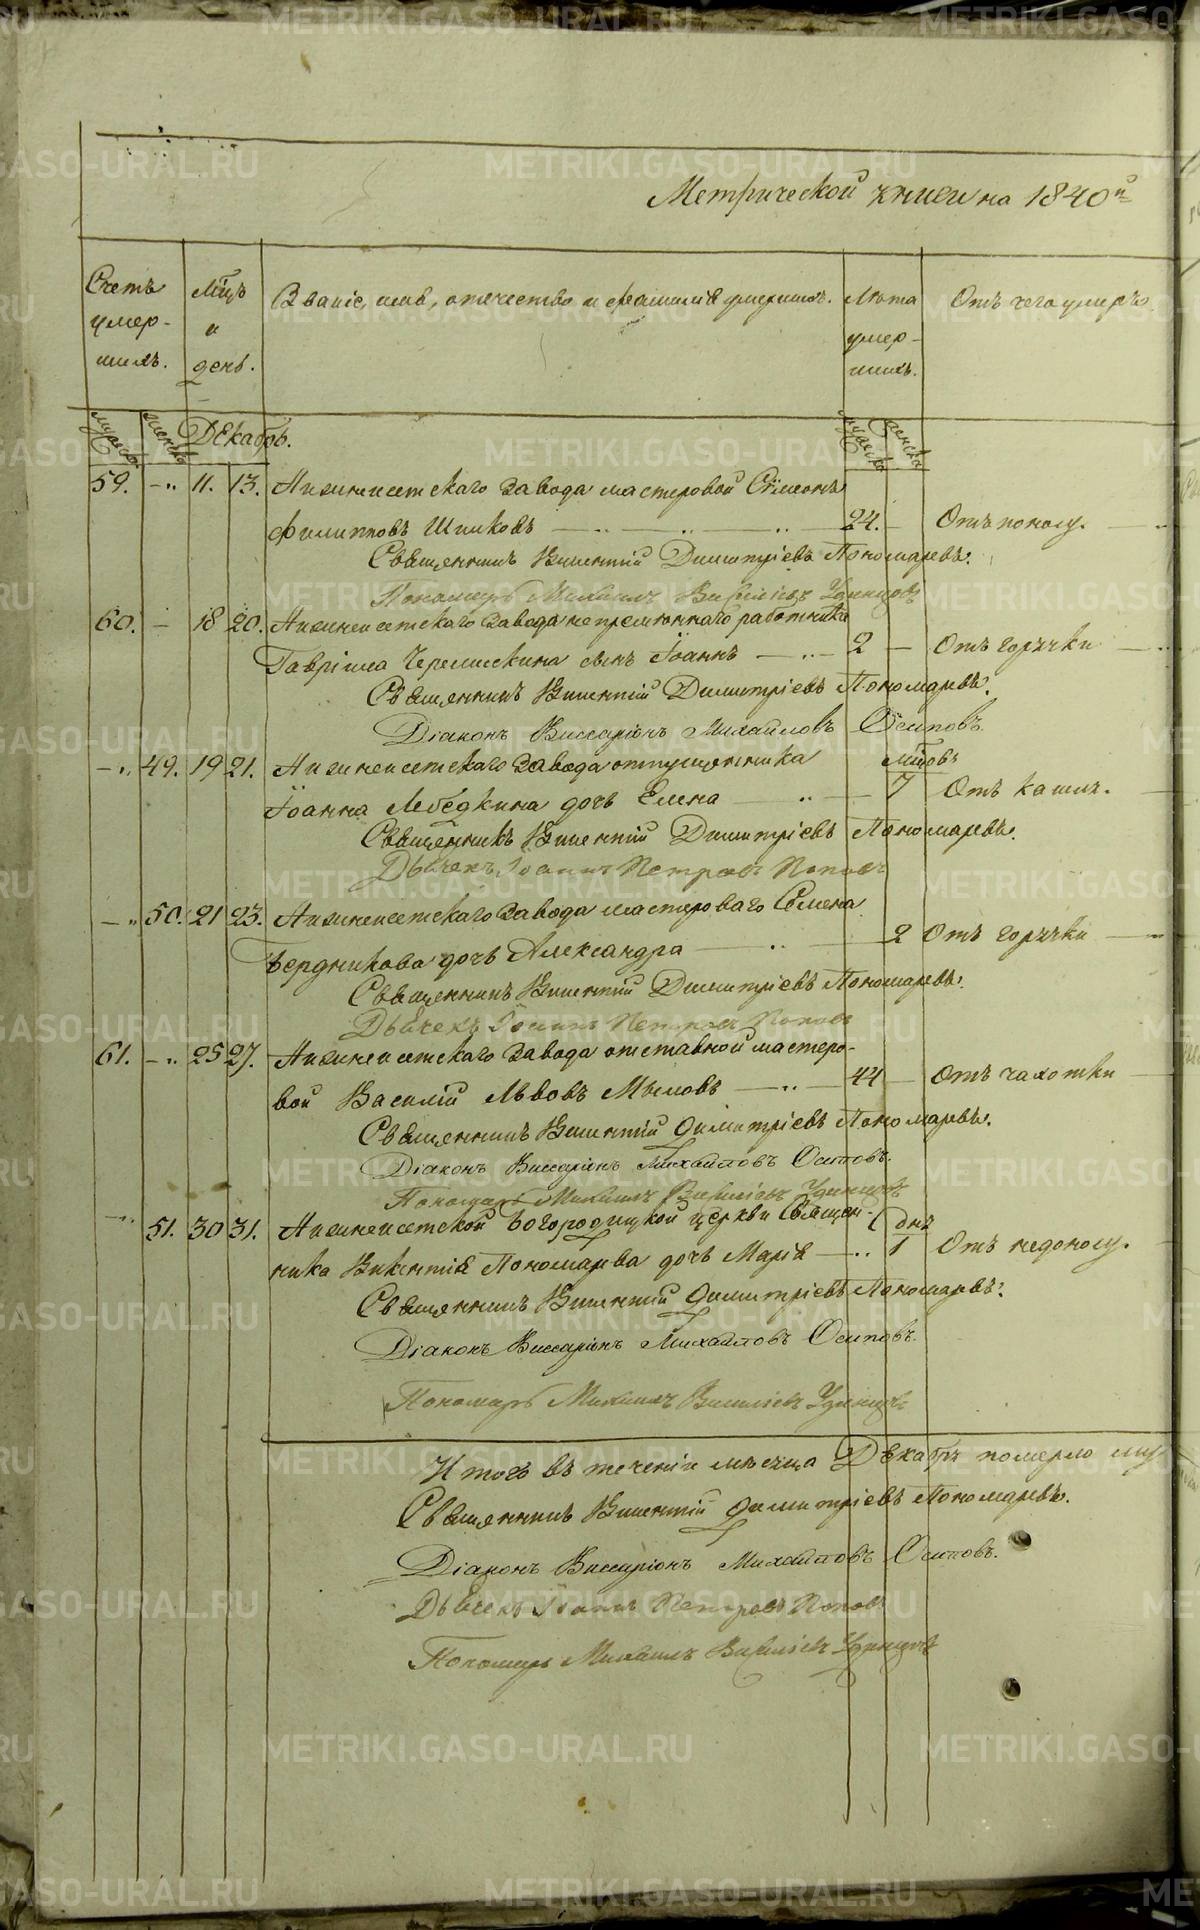 Метрической книги на 1840й
Счетъ умершихъ.
Мѣцъ и день.
Званіе, имя, отечество и фамилія умершихъ.
Лѣта умершихъ.
Отъ чего умеръ.
мужеска
женска
Декабрь.
мужеска
женска
59. -„ 11. 13. Нижнеисетскаго завода мастеровой Сѵмеонъ
Филипповъ Шишковъ 24. - Отъ поносу.
Священникъ Викентій Димитріевъ Пономаревъ.
Пономарь Михаилъ Васильевъ Удинцовъ
60. - 18 20. Нижнеисетскаго завода непремѣннаго работника
Гавріила Черемискина сынъ Іоаннъ 2 - Отъ горячки
Священникъ Викентій Димитріевъ Пономаревъ.
Діаконъ Виссаріонъ Михайловъ Осиповъ.
-„ 49. 19 21. Нижнеисетскаго завода отпущенника мѣцовъ
Іоанна Лебедкина дочь Елена 7 Отъ кашля.
Священникъ Викентій Димитріевъ Пономаревъ.
Дьячекъ Іоаннъ Петровъ Поповъ
-„ 50. 21 23. Нижнеисетскаго завода мастероваго Семена
Бердникова дочь Александра 2 Отъ горячки
Священникъ Викентій Димитріевъ Пономаревъ.
Дьячекъ Іоаннъ Петровъ Поповъ
61. -„ 25 27. Нижнеисетскаго завода отставной мастеро-
вой Василій Львовъ Мыловъ 44 - Отъ чахотки
Священникъ Викентій Димитріевъ Пономаревъ.
Діаконъ Виссаріонъ Михайловъ Осиповъ.
Пономарь Михаилъ Васильевъ Удинцовъ
-„ 51. 30 31. Нижнеисетской Богородицкой церкви Священ- днь
ника Викентія Пономарева дочь Марія 1 Отъ недоносу.
Священникъ Викентій Димитріевъ Пономаревъ.
Діаконъ Виссаріонъ Михайловъ Осиповъ.
Пономарь Михаилъ Васильевъ Удинцовъ
Итогъ въ теченіи мѣсяца Декабрѣ померло му
Священникъ Викентій Димитріевъ Пономаревъ.
Діаконъ Виссаріонъ Михайловъ Осиповъ.
Дьячекъ Іоаннъ Петровъ Поповъ
Пономарь Михаилъ Васильевъ Удинцовъ
METRIKI.GASO-URAL.RU